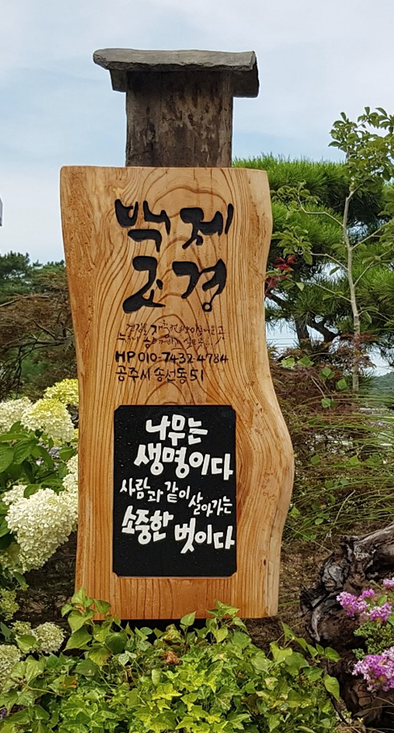 백제
조경
HP 010-7432-4784
공주시 송선동 51
나무는
생명이다
사람과 같이 살아가는
소중한 벗이다